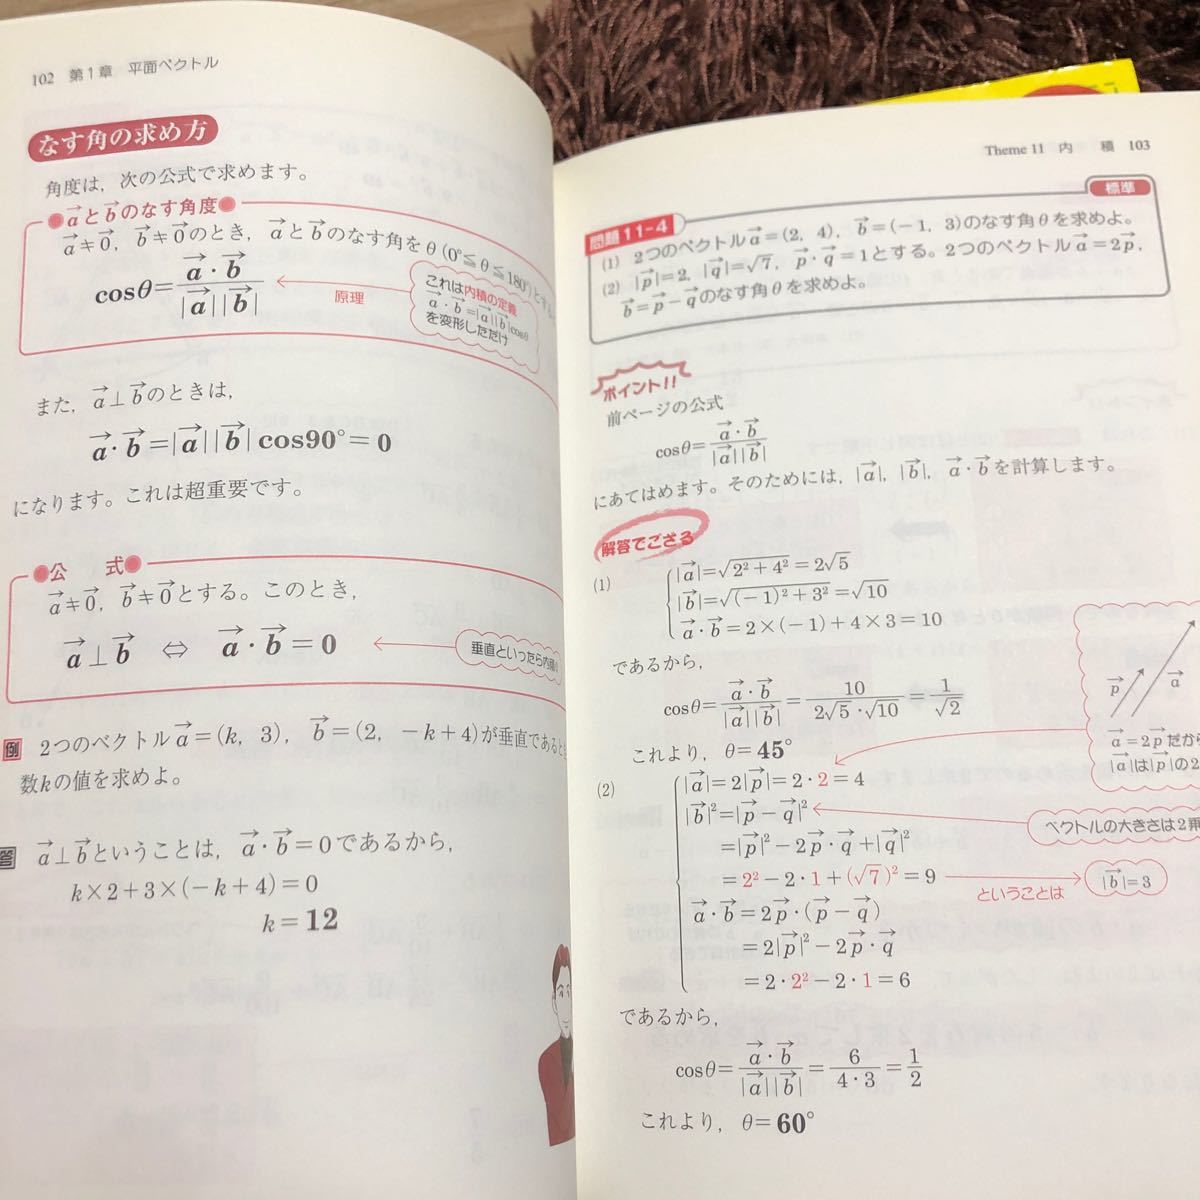 102 第1章 平面ベクトル
なす角の求め方
角度は，次の公式で求めます。
●a→とb→のなす角度●
a→≠0→，b→≠0→のとき，a→とb→のなす角をθ(0°≦θ≦180°)とす
cosθ=a→・b→/|a→||b→|
原理
これは内積の定義
a→・b→=|a→||b→|cosθ
を変形しただけ
また，a→⊥b→のときは，
a→・b→=|a→||b→|cos90°=0
になります。これは超重要です。
●公 式●
a→≠0→，b→≠0→とする。このとき，
a→⊥b→ ⇔ a→・b→=0
垂直といったら内積
例 2つのベクトルa→=(k，3)，b→=(2，-k+4)が垂直であると
数kの値を求めよ。
答 a→⊥b→ということは，a→・b→=0であるから，
k×2+3×(-k+4)=0
k=12
Theme 11 内 積 103
標準
問題 11-4
(1) 2つのベクトルa→=(2，4)，b→=(-1，3)のなす角θを求めよ。
(2) |p→|=2，|q→|=√7，p→・q→=1とする。2つのベクトルa→=2p→，
b→=p→-q→のなす角θを求めよ。
ポイント!!
前ページの公式
cosθ=a→・b→/|a→||b→|
にあてはめます。そのためには，|a→|，|b→|，a→・b→を計算します。
解答でござる
(1) |a→|=√(2²+4²)=2√5
|b→|=√((-1)²+3²)=√10
a→・b→=2×(-1)+4×3=10
であるから，
cosθ=a→・b→/|a→||b→|=10/(2√5・√10)=1/√2
これより，θ=45°
p→ a→
a→=2p→だから
|a→|は|p→|の2
(2) |a→|=2|p→|=2・2=4
|b→|²=|p→-q→|²
=|p→|²-2p→・q→+|q→|²
=2²-2・1+(√7)²=9
ベクトルの大きさは2乗
ということは
|b→|=3
a→・b→=2p→・(p→-q→)
=2|p→|²-2p→・q→
=2・2²-2・1=6
であるから，
cosθ=a→・b→/|a→||b→|=6/(4・3)=1/2
これより，θ=60°